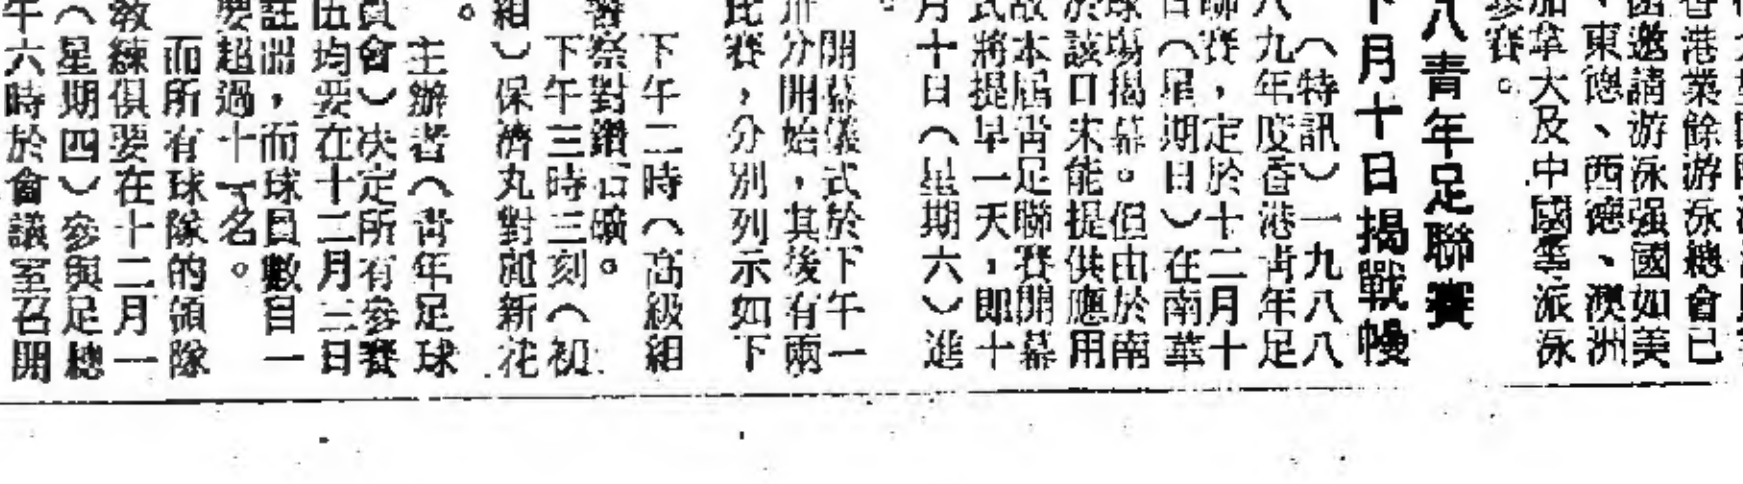 香港業餘游泳總會已
函邀請游泳强國如美
、東德、西德、澳洲
加拿大及中國等派泳
參賽。
八青年足聯賽
下月十日揭戰幔
（特訊）一九八八
八九年度香港青年足
聯賽，定於十二月十
日（星期日）在南華
球場揭幕。但由於南
於該日未能提供應用
故本屆青足聯賽開幕
式將提早一天，即十
月十日（星期六）進
。
開幕儀式於下午一
卅分開始，其後有兩
比賽，分別列示如下
下午二時（高級組
警察對鑽石礦。
下午三時三刻（初
組）保濟丸對新花
。
主辦者（青年足球
員會）決定所有參賽
伍均要在十二月三日
註冊，而球員數目一
要超過十名。
而所有球隊的領隊
教練俱要在十二月一
（星期四）參與足總
午六時於會議室召開